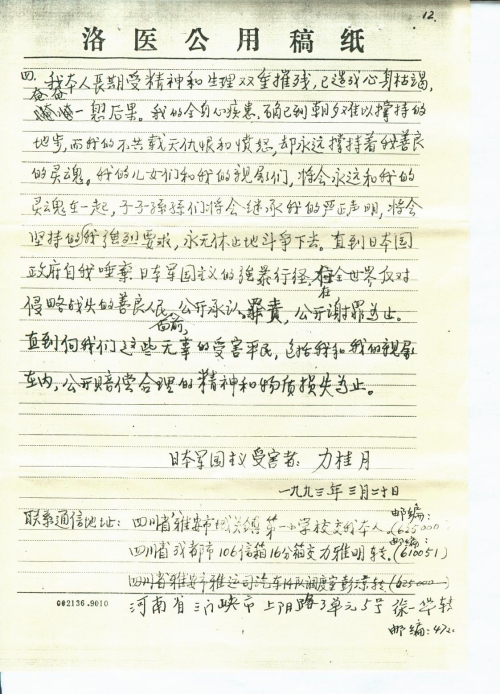 12.
洛医公用稿纸
四. 我本人长期受精神和生理双重摧残,已造成心身枯竭,
奄奄
一息后果。我的全身心疾患,确已到朝夕难以撑持的
地步,而我的不共戴天仇恨和愤怒,却永远撑持着我善良
的灵魂。我的儿女们和我的亲属们,将会永远和我的
灵魂在一起,子子孙孙们将会继承我的严正声明,将会
坚持的我强烈要求,永无休止地斗争下去。直到日本国
政府自我唾弃日本军国主义的强暴行径,在全世界反对
侵略战失的善良人民面前,公开承认罪责,公开谢罪为止。
直到向我们这些无辜的受害平民,包括我和我的亲属
在内,公开赔偿合理的精神和物质损失为止。
日本军国主义受害者:力桂月
一九九三年三月二十日
联系通信地址:四川省雅安市城关镇第一小学校交我本人 邮编:(625000)
四川省成都市106信箱16分箱交力雅明转. 邮编:(610051)
四川省雅安市雅运司汽车队调度室彭 转(625000)
河南省三门峡市上阳路3单元5号 徐一华转
邮编:472
Q02136.9010